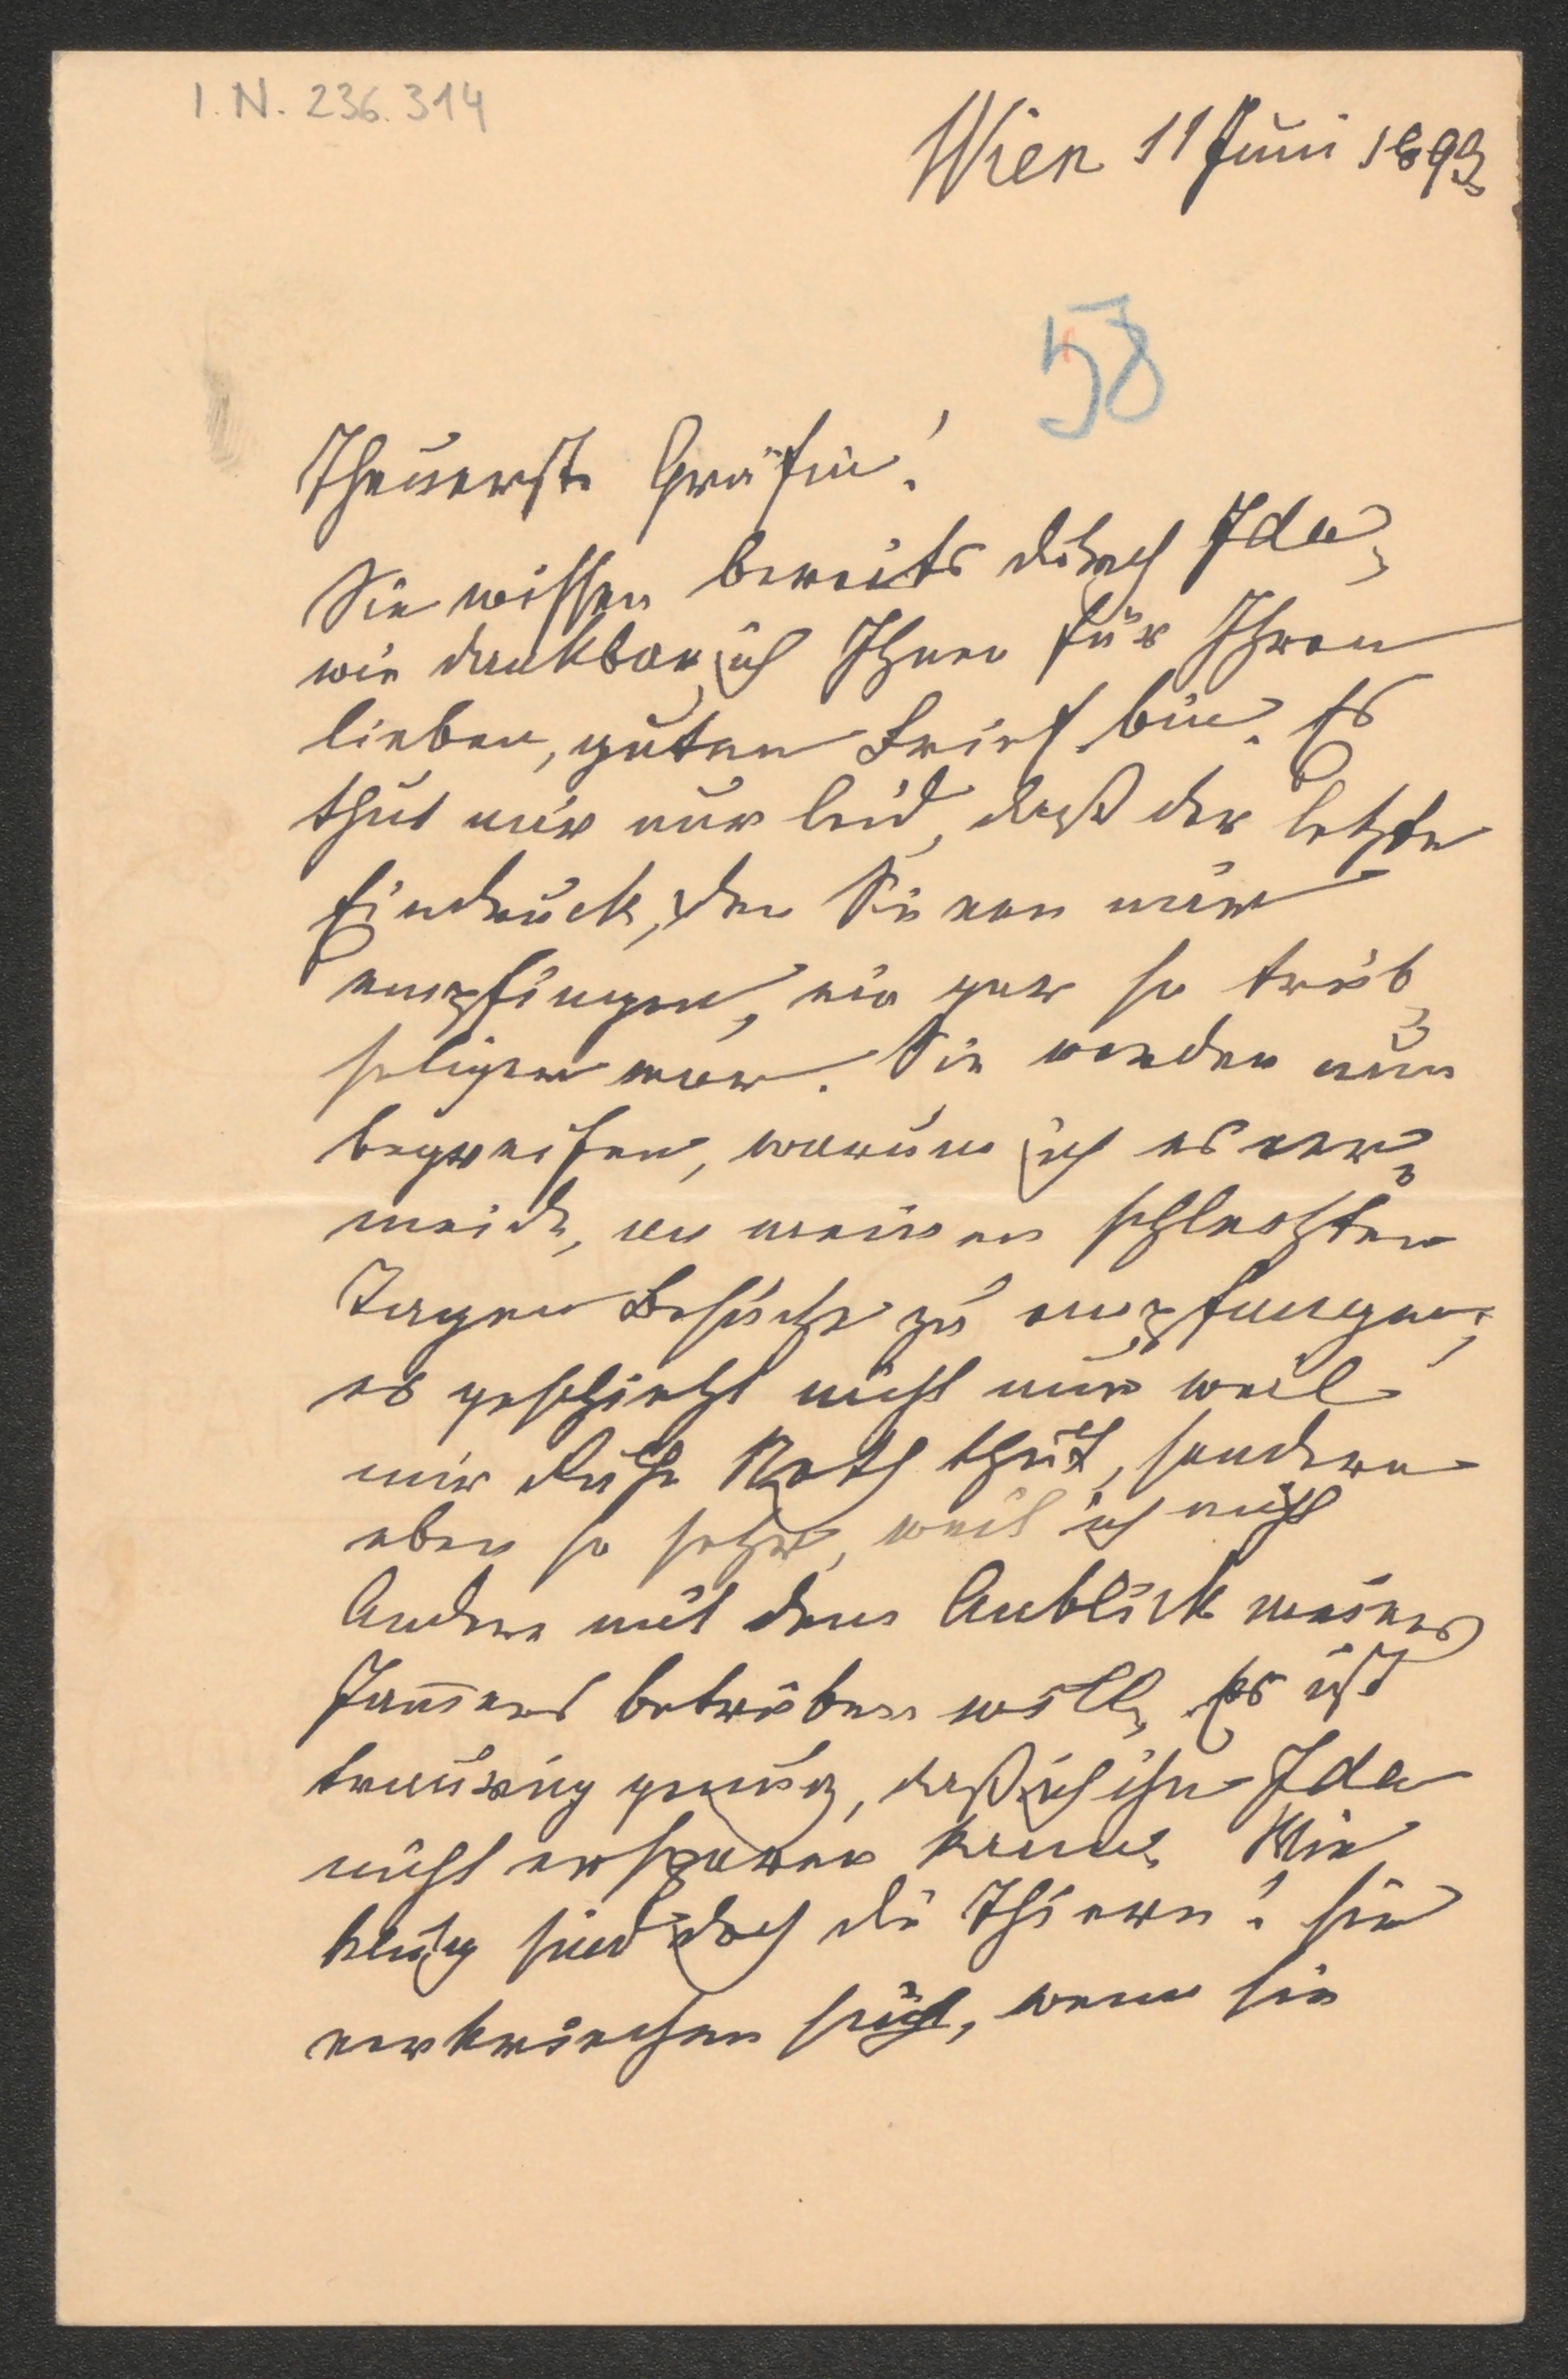 I. N. 236.314
Wien 11 Juni 1893
58
Theuerste Gräfin!
Sie wissen bereits durch Ida,
wie dankbar ich Ihnen für Ihren
lieben, guten Brief bin. Es
thut mir nur leid, daß der letzte
Eindruck, den Sie von mir
empfingen, ein gar so trüb-
seliger war. Sie werden nun
begreifen, warum ich es ver-
meide, an meinen schlechten
Tagen Besuche zu empfangen;
es geschieht nicht nur weil
mir Ruhe Noth thut, sondern
eben so sehr, weil ich nicht
Andere mit dem Anblick meines
Jam̄ers betrüben will. Es ist
traurig genug, daß ich ihn Ida
nicht ersparen kann. Wie
klug sind doch die Thiere! sie
verkriechen sich, wenn sie